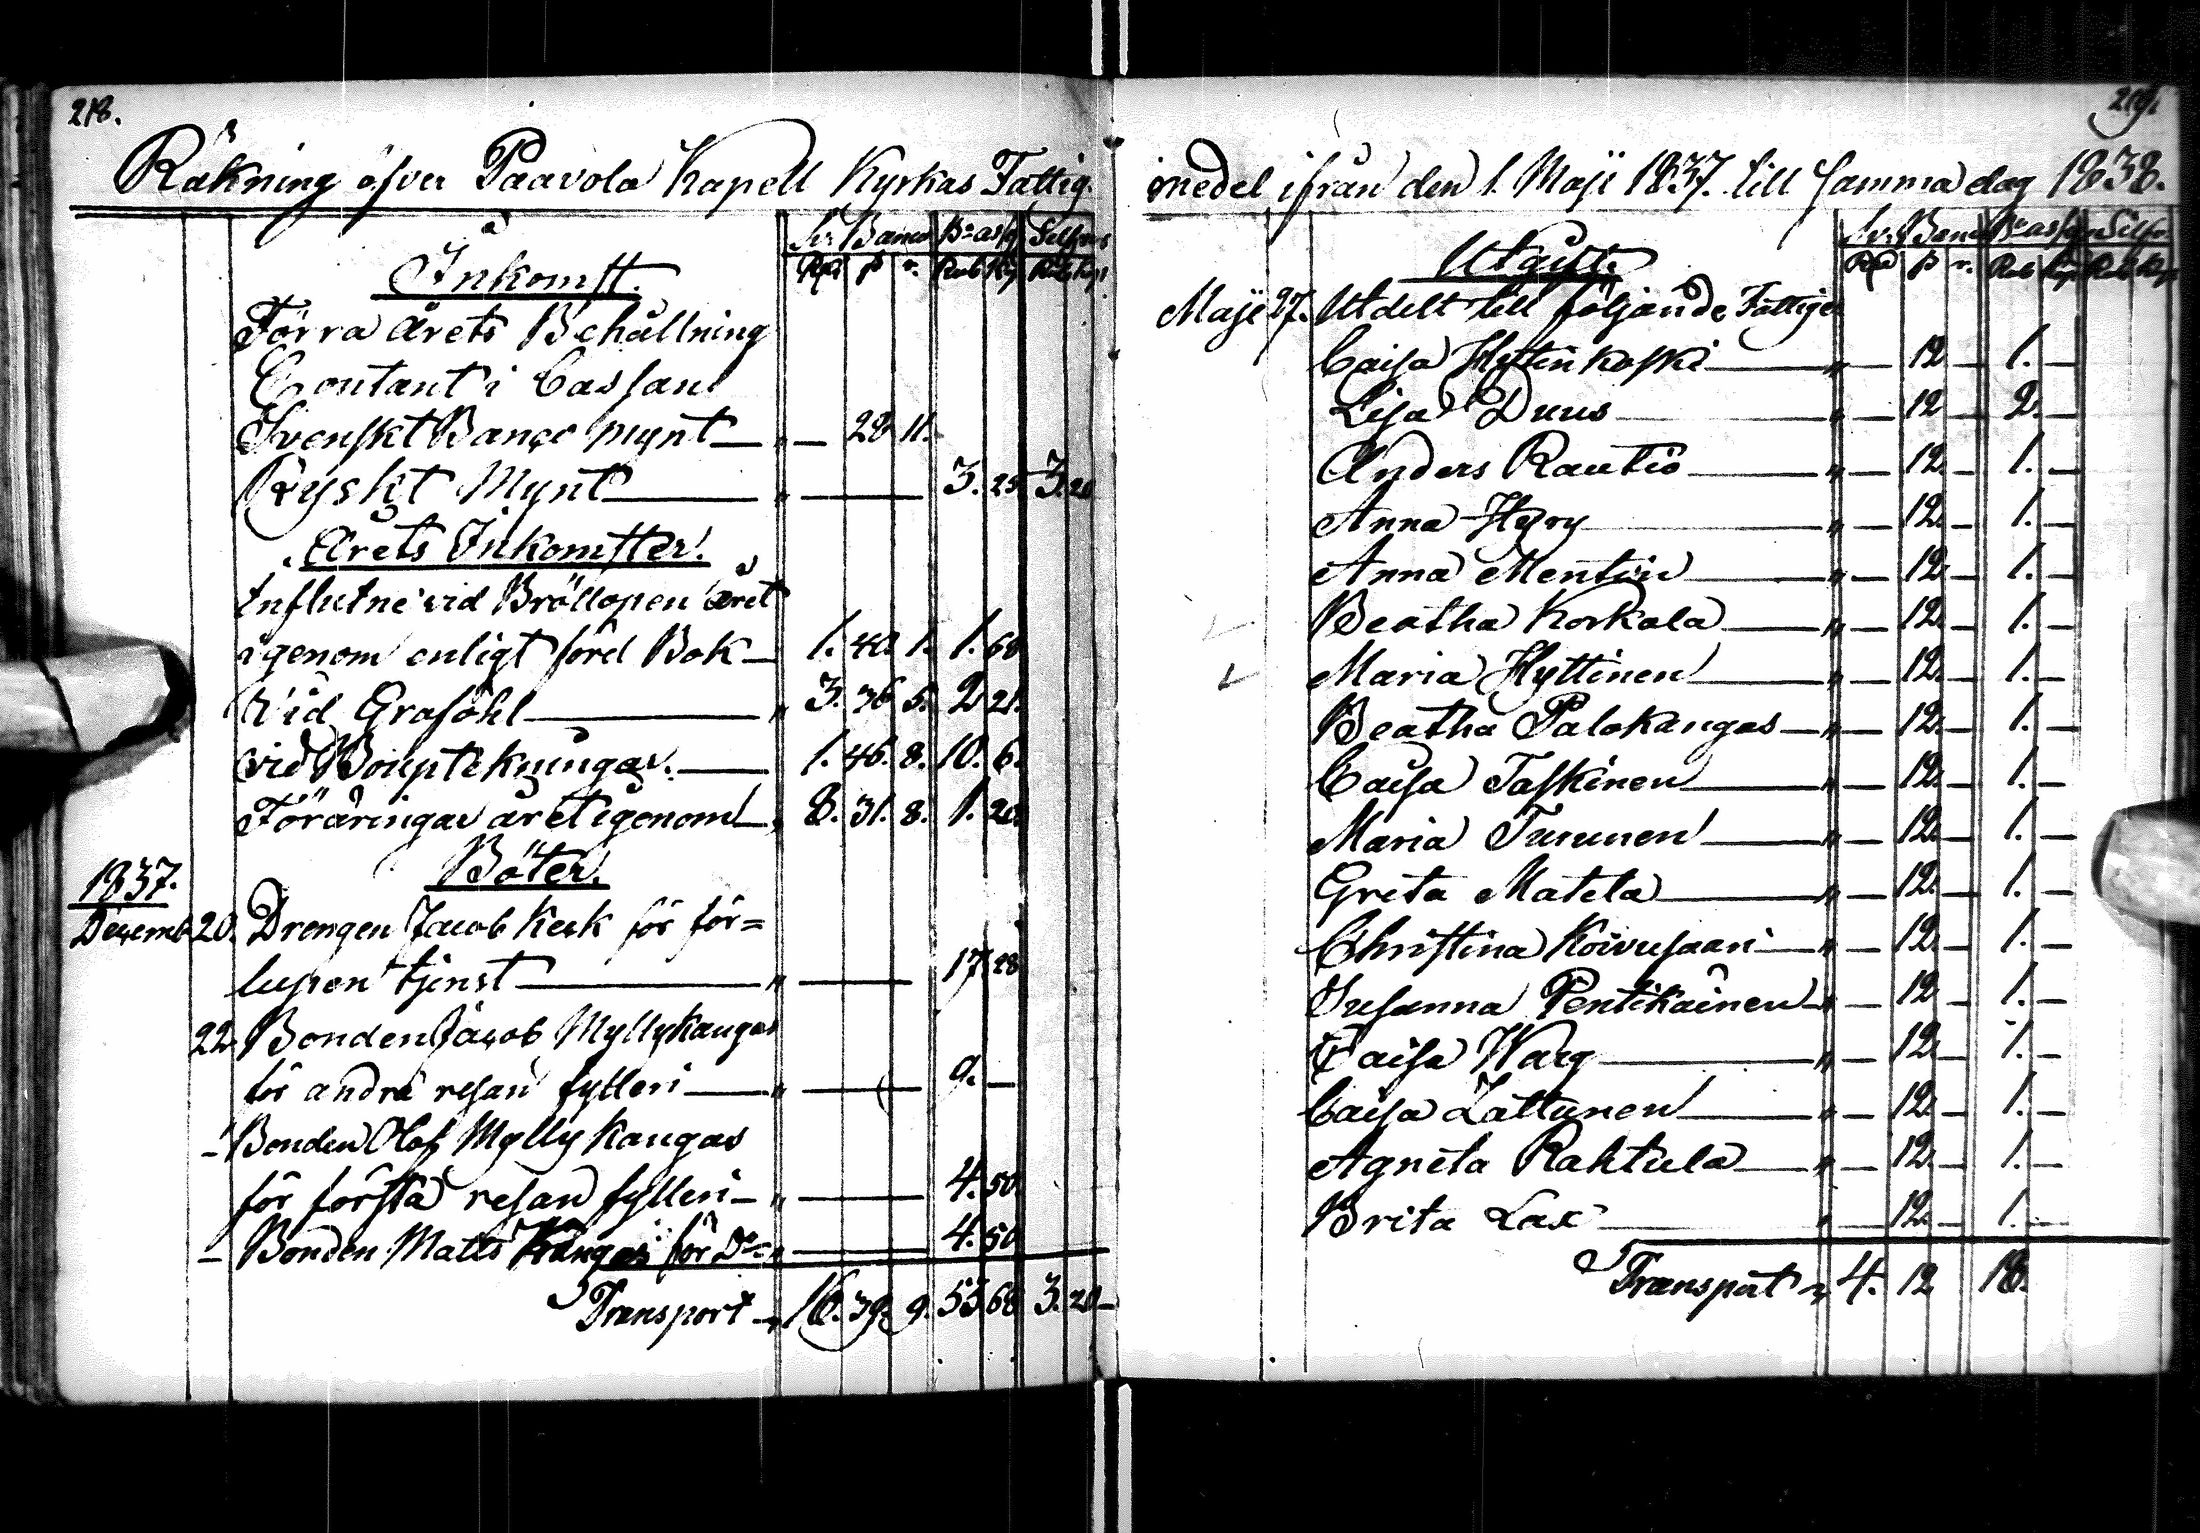 218.
Räkning öfver Paavola Kapell Kyrkas Fattig
Sv: Banco B:o ass Silfver
Inkomst.
Rd ß r. Rub Kop Rub kop
Förra Årets Behållning
Contant i Cassan
Svenskt Banco mynt — " — 28 11.
Ryskt Mynt — " — 3. 25 3. 20
Årets Inkomster.
Influtne vid Bröllopen året
igenom enligt förd Bok — 1. 40. 1. 1. 68
Vid Grafölil — " 3. 36 5. 2 21.
vid Bouptekningar. — 1. 46. 8. 10. 6.
Föräringar året igenom — " 8. 31. 8. 1. 20
Böter.
1837.
Decemb 20. Drengen Jacob Keck för för=
lupen tjenst — " — 17. 28
22 Bonden Jacob Myllykangas
för andra resan fylleri — " — 9. —
— Bonden Olof Myllykangas
för första resan fylleri — " — 4. 50
— Bonden Matts Kangas för D:o — " — 4. 50
Transport — " 16. 39. 9. 53 68 3. 20 —
219.
medel ifrån den 1. Maji 1837. till samma dag 1838.
Sv: Banco B:o ass Silfv
Utgift.
Rd ß r. Rub Kop Rub Kop
Maji 27. Utdelt till följande Fattige
Caisa Hyttinkoski — " — 12 — 1. —
Lisa Duus — " — 12 — 2. —
Anders Rautio — " — 12. — 1. —
Anna Hyry — " — 12. — 1. —
Anna Mentuin — " — 12 — 1. —
Beatha Korkala — " — 12. — 1. —
Maria Hyttinen — " — 12. — 1. —
Beatha Palokangas — " — 12. — 1. —
Caisa Taskinen — " — 12. — 1. —
Maria Turunen — " — 12. — 1. —
Greta Matela — " — 12. — 1. —
Christina Koivusaari — " — 12. — 1. —
Susanna Pentikäinen — " — 12 — 1. —
Caisa Warg — " — 12. — 1. —
Caisa Lattunen — " — 12. — 1. —
Agneta Rahtula — " — 12. — 1. —
Brita Lax — " — 12. — 1. —
Transport " 4. 12 18.